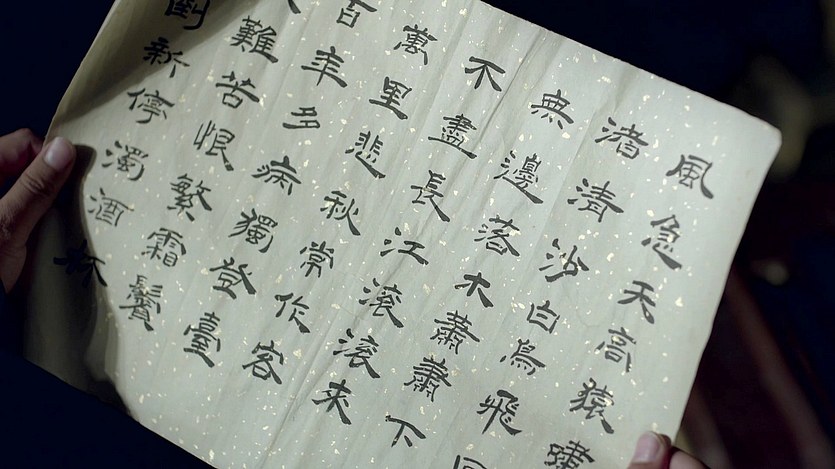 風急天高猿嘯
渚清沙白鳥飛
無邊落木蕭蕭下
不盡長江滚滚來
萬里悲秋常作客
百年多病獨登臺
難苦恨繁霜鬢
倒新停濁酒杯